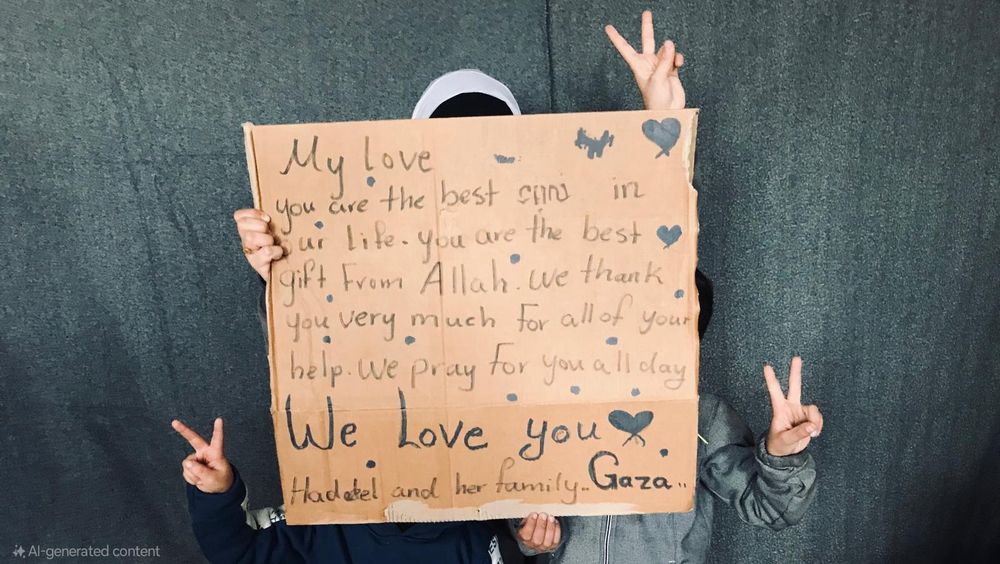 My love
you are the best in
our Life. you are the best
gift From Allah. we thank
you very much For all of your
help. We pray For you all day
We Love you
and her family.. Gaza..
AI-generated content